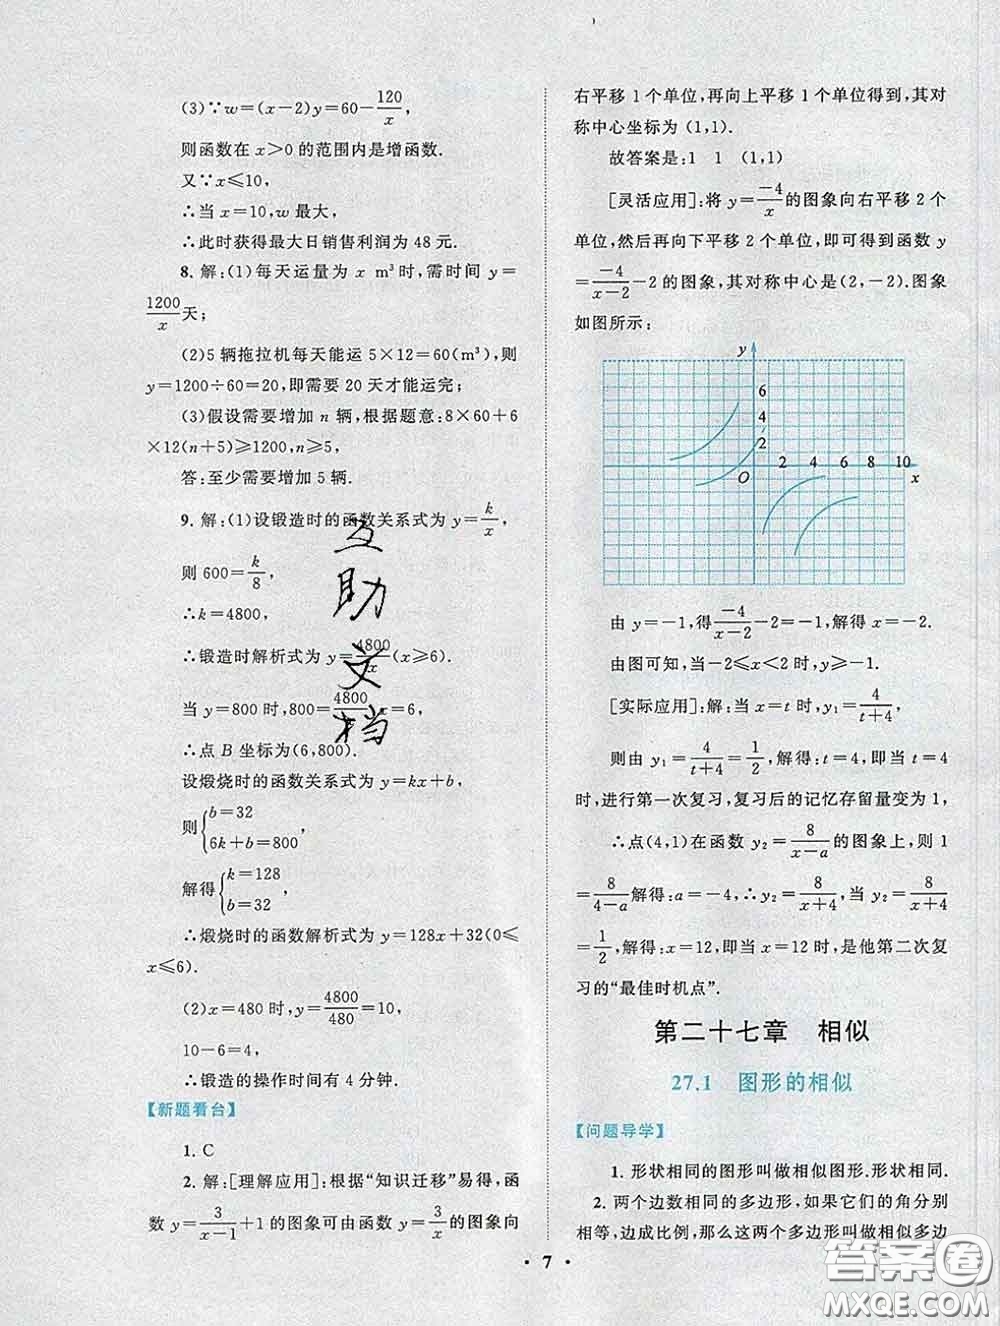 (3)∵w=(x−2)y=60−120/x,
则函数在 x>0 的范围内是增函数.
又∵x≤10,
∴当 x=10,w 最大,
∴此时获得最大日销售利润为 48 元.
8. 解:(1)每天运量为 x m³时,需时间 y=
1200/x天;
(2)5 辆拖拉机每天能运 5×12=60(m³),则
y=1200÷60=20,即需要 20 天才能运完;
(3)假设需要增加 n 辆,根据题意:8×60+6
×12(n+5)≥1200,n≥5,
答:至少需要增加 5 辆.
9. 解:(1)设锻造时的函数关系式为 y=k/x,
则 600=k/8,
∴k=4800,
∴锻造时解析式为 y=4800/x(x≥6).
当 y=800 时,800=4800/x,x=6,
∴点 B 坐标为(6,800).
设煅烧时的函数关系式为 y=kx+b,
则{b=32
6k+b=800,
解得{k=128
b=32,
∴煅烧时的函数解析式为 y=128x+32(0≤
x≤6).
(2)x=480 时,y=4800/480=10,
10−6=4,
∴锻造的操作时间有 4 分钟.
【新题看台】
1. C
2. 解:[理解应用]:根据“知识迁移”易得,函
数 y=3/(x−1)+1 的图象可由函数 y=3/x的图象向
右平移 1 个单位,再向上平移 1 个单位得到,其对
称中心坐标为 (1,1).
故答案是:1 1 (1,1)
[灵活应用]:将 y=−4/x的图象向右平移 2 个
单位,然后再向下平移 2 个单位,即可得到函数 y
=−4/(x−2)−2 的图象,其对称中心是(2,−2).图象
如图所示:
y
6
4
2
O
2 4 6 8 10
x
由 y=−1,得−4/(x−2)−2=−1,解得 x=−2.
由图可知,当−2≤x<2 时,y≥−1.
[实际应用]:解:当 x=t 时,y₁=4/(t+4),
则由 y₁=4/(t+4)=1/2,解得:t=4,即当 t=4
时,进行第一次复习,复习后的记忆存留量变为 1,
∴点(4,1)在函数 y₂=8/(x−a)的图象上,则 1
=8/(4−a)解得:a=−4,∴y₂=8/(x+4),当 y₂=8/(x+4)=
1/2,解得:x=12,即当 x=12 时,是他第二次复
习的“最佳时机点”.
第二十七章 相似
27.1 图形的相似
【问题导学】
1. 形状相同的图形叫做相似图形.形状相同.
2. 两个边数相同的多边形,如果它们的角分别
相等,边成比例,那么这两个多边形叫做相似多边
· 7 ·
互
助
文
档
答案圈
MXQE.COM